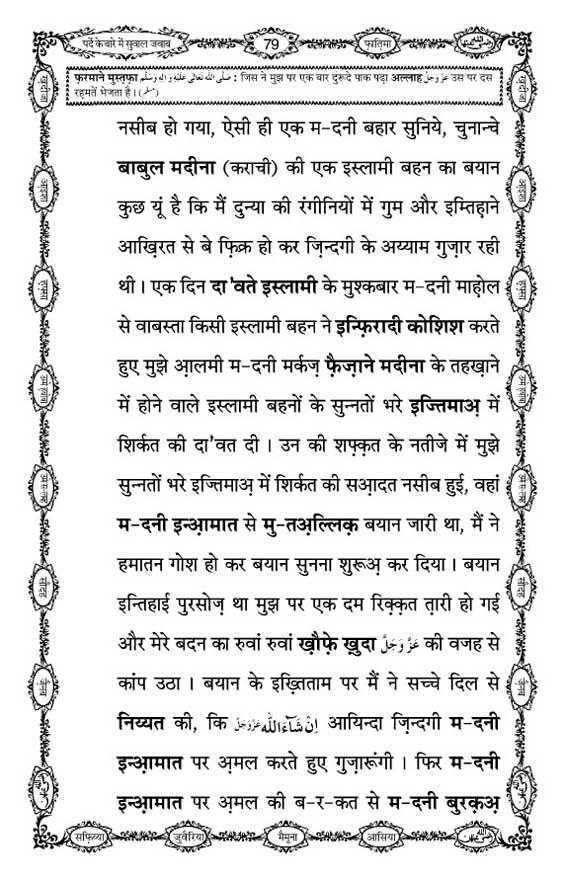 पर्दे के बारे में सुवाल जवाब
79
फ़ातिमा
फ़रमाने मुस्तफ़ा صَلَّى اللهُ تَعَالٰى عَلَيْهِ وَاٰلِهٖ وَسَلَّم : जिस ने मुझ पर एक बार दुरूदे पाक पढ़ा अल्लाह عَزَّوَجَلَّ उस पर दस
रहमतें भेजता है । (مسلم)
नसीब हो गया, ऐसी ही एक म-दनी बहार सुनिये, चुनान्चे
बाबुल मदीना (कराची) की एक इस्लामी बहन का बयान
कुछ यूं है कि मैं दुन्या की रंगीनियों में गुम और इम्तिहाने
आख़िरत से बे फ़िक्र हो कर ज़िन्दगी के अय्याम गुज़ार रही
थी । एक दिन दा'वते इस्लामी के मुश्कबार म-दनी माहोल
से वाबस्ता किसी इस्लामी बहन ने इन्फ़िरादी कोशिश करते
हुए मुझे आ़लमी म-दनी मर्कज़ फ़ैज़ाने मदीना के तहख़ाने
में होने वाले इस्लामी बहनों के सुन्नतों भरे इज्तिमाअ़ में
शिर्कत की दा'वत दी । उन की शफ़्क़त के नतीजे में मुझे
सुन्नतों भरे इज्तिमाअ़ में शिर्कत की सआ़दत नसीब हुई, वहां
म-दनी इन्आ़मात से मु-तअ़ल्लिक़ बयान जारी था, मैं ने
हमातन गोश हो कर बयान सुनना शुरूअ़ कर दिया । बयान
इन्तिहाई पुरसोज़ था मुझ पर एक दम रिक़्क़त त़ारी हो गई
और मेरे बदन का रुवां रुवां ख़ौफ़े ख़ुदा عَزَّوَجَلَّ की वजह से
कांप उठा । बयान के इख़्तिताम पर मैं ने सच्चे दिल से
निय्यत की, कि اِنْ شَآءَ اللّٰه عَزَّوَجَلَّ आयिन्दा ज़िन्दगी म-दनी
इन्आ़मात पर अ़मल करते हुए गुज़ारूंगी । फिर म-दनी
इन्आ़मात पर अ़मल की ब-र-कत से म-दनी बुरक़अ़
सफ़िय्या
जुवैरिया
मैमूना
आसिया